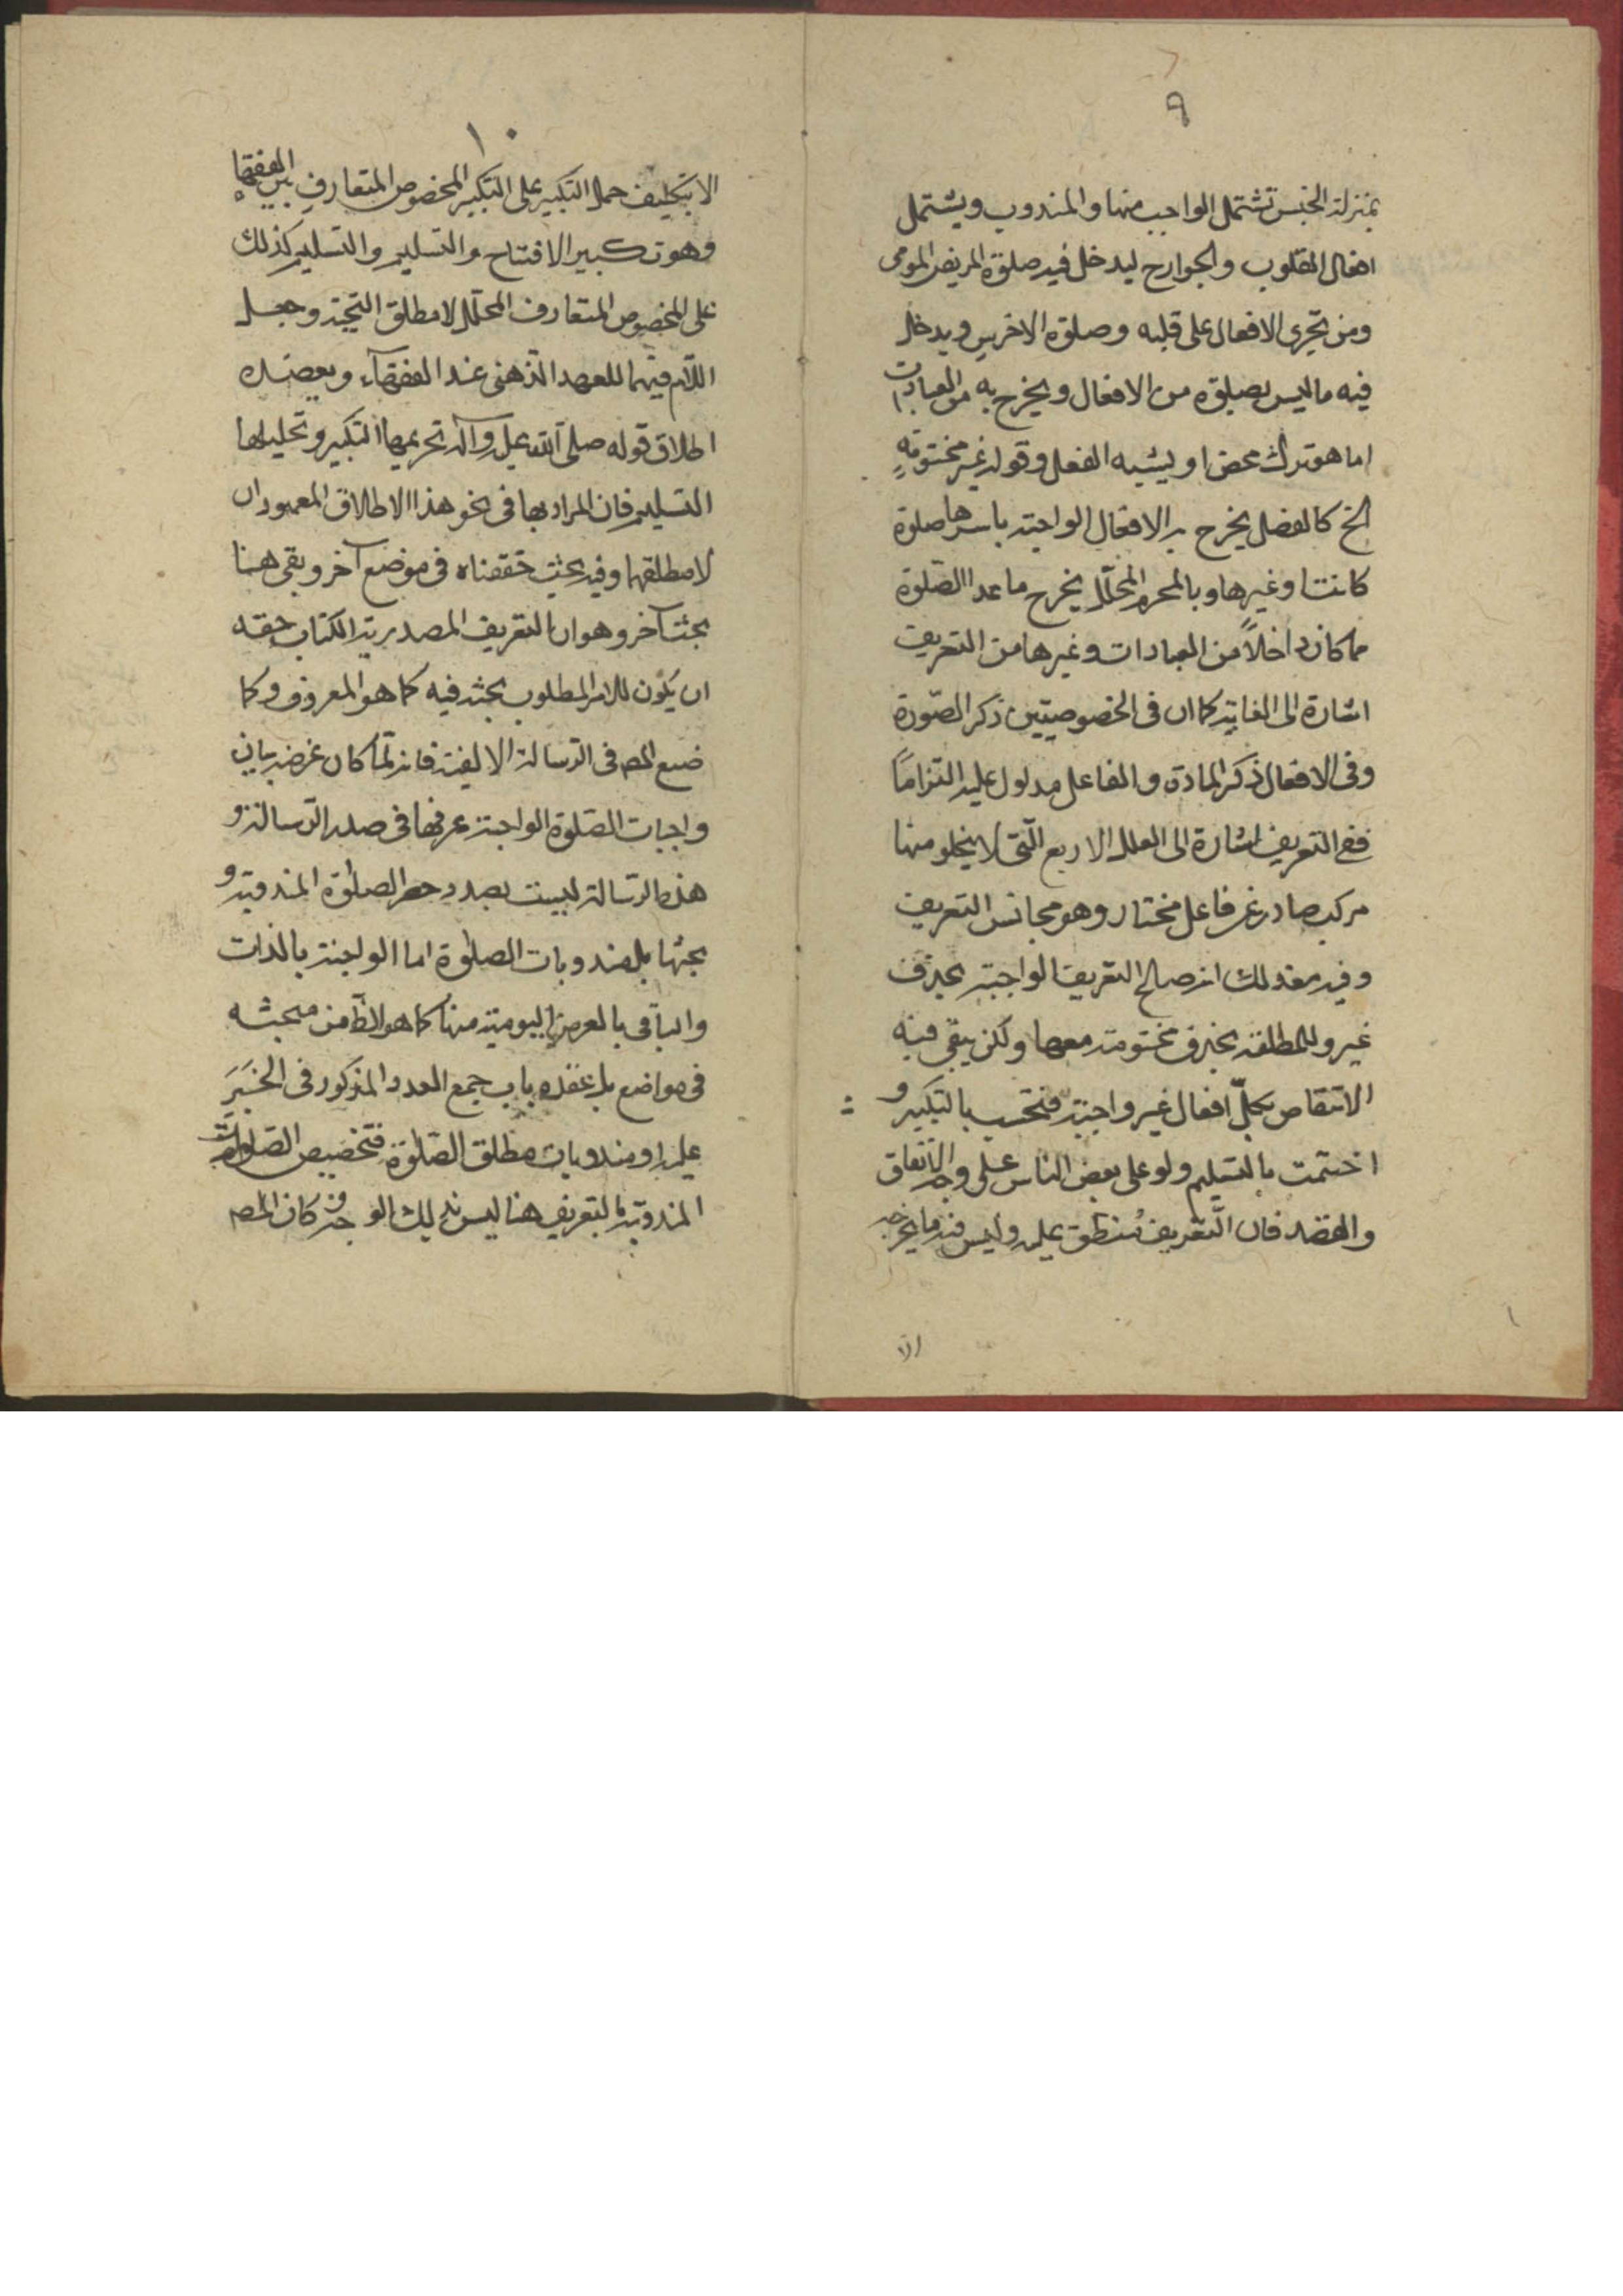 ٩
بمنزلة الجنس تشتمل الواجب منها والمندوب ويشتمل
افعال القلوب والجوارح ليدخل فيه صلوة المريض المومى
ومن يجرى الافعال على قلبه وصلوة الاخرس ويدخل
فيه ما ليس بصلوة من الافعال ويخرج به من العبادات
اما هو ترك محض او يشبه الفعل وقوله غير مختومة
الخ كالفصل يخرج به الافعال الواجبة باسرها صلوة
كانت او غيرها وبالمحرم المحلل يخرج ما عدا الصّلوة
مما كان داخلاً من العبادات وغيرها من التعريف
اشارة الى الغاية كما ان فى الخصوصيتين ذكر الصّورة
وفى الافعال ذكر المادة والفاعل مدلول عليه التزاماً
ففى التعريف اشارة الى العلل الاربع الّتى لا يخلو منها
مركب صادر عن فاعل مختار وهو مجانس التعريف
وفيه مع ذلك انه صالح لتعريف الواجبة بحذف
غير وللمطلقة بحذف مختومة معها ولكن يبقى فيه
الانتقاص بكلّ افعال غير واجبة فتحت بالتكبير و
اختمت بالتسليم ولو على بعض الناس على وجه الاتفاق
والقصد فان التّعريف منطبق عليه وليس فيه ما يخرجه
الا
١٠
الا بتكليف حمل التكبير على التكبير المخصوص المتعارف بين الفقهاء
وهو تكبير الافتتاح والتسليم والتسليم كذلك
على المخصوص المتعارف المحلّل لا مطلق التحية وجعل
اللام فيهما للعهد الذهنى عند الفقهاء ويعضده
اطلاق قوله صلى الله عليه وآله تحريمها التكبير وتحليلها
التسليم فان المراد بها فى نحو هذا الاطلاق المعهودان
لا مطلقهما وفيه بحث حققناه فى موضع آخر وبقى هنا
بحث آخر وهو ان التعريف المصدر به الكتاب حقه
ان يكون للامر المطلوب بحثه فيه كما هو المعروف وكما
صنع المص فى الرسالة الالفية فانه لمّا كان غرضه بيان
واجبات الصّلوة الواجبة عرفها فى صدر الرسالة و
هذه الرسالة ليست بصدد حصر الصلوة المندوبة و
بحثها بل مندوبات الصلوة اما الواجبة بالذات
والباقى بالعرض اليومية منها كما هو الظ من مبحثه
فى مواضع بل عقده باب جمع العدد المذكور فى الخبر
عليه او مندوبات مطلق الصّلوة فتخصيص الصلوات
المندوبة بالتعريف هنا ليس بذلك الوجه وان كان المص